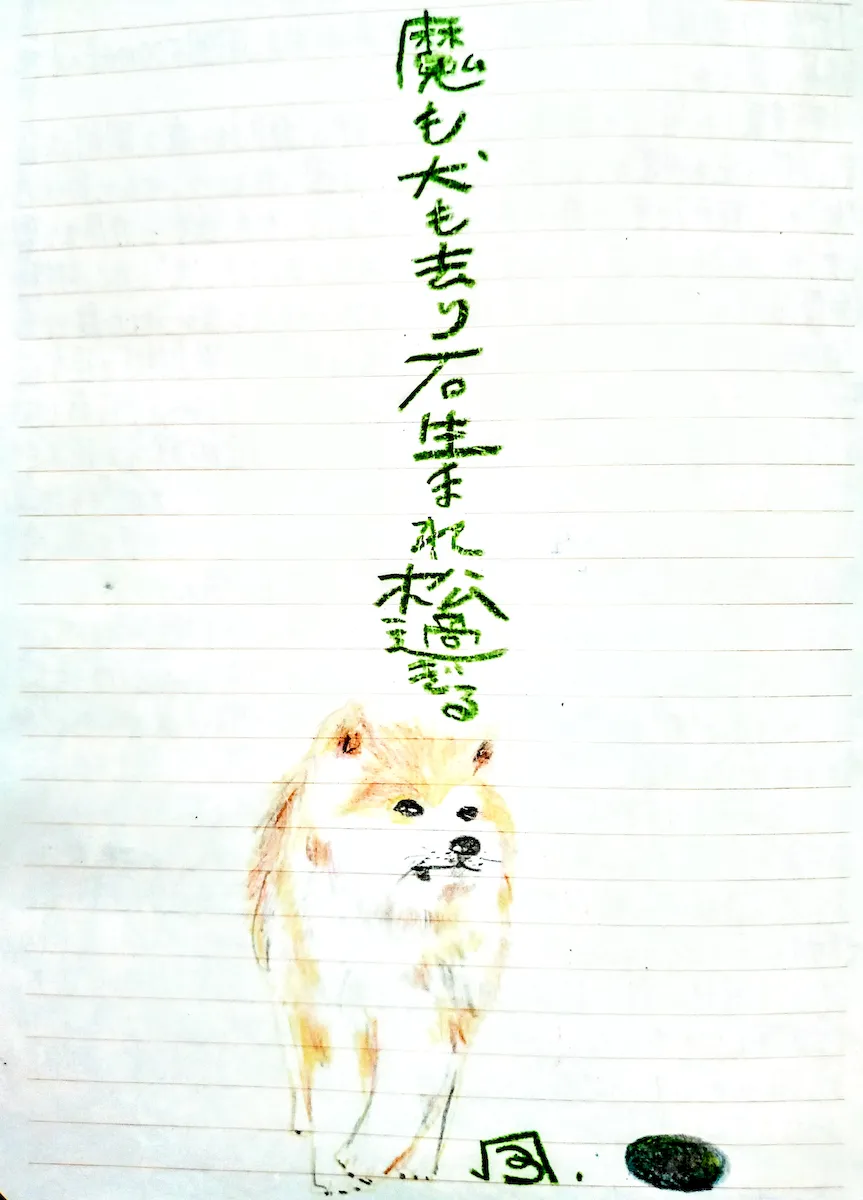 魔も犬も去り石生まれ松過ぎる